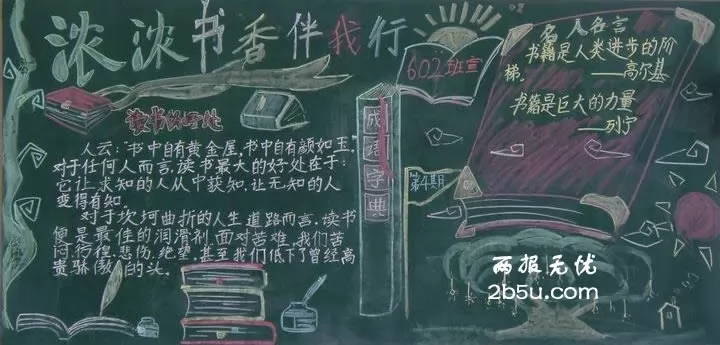 浓浓书香伴我行
602班宣
名人名言
书籍是人类进步的阶
梯。
——高尔基
书籍是巨大的力量
——列宁
读书的好处
人云:"书中自有黄金屋,书中自有颜如玉。
对于任何人而言,读书最大的好处在于:
它让求知的人从中获知,让无知的人
变得有知。
对于坎坷曲折的人生道路而言,读书
便是最佳的润滑剂。面对苦难,我们苦
闷、彷徨、悲伤、绝望,甚至我们低下了曾经高
贵骄傲的头。
成语字典
第4期
两报无优
2b5u.com